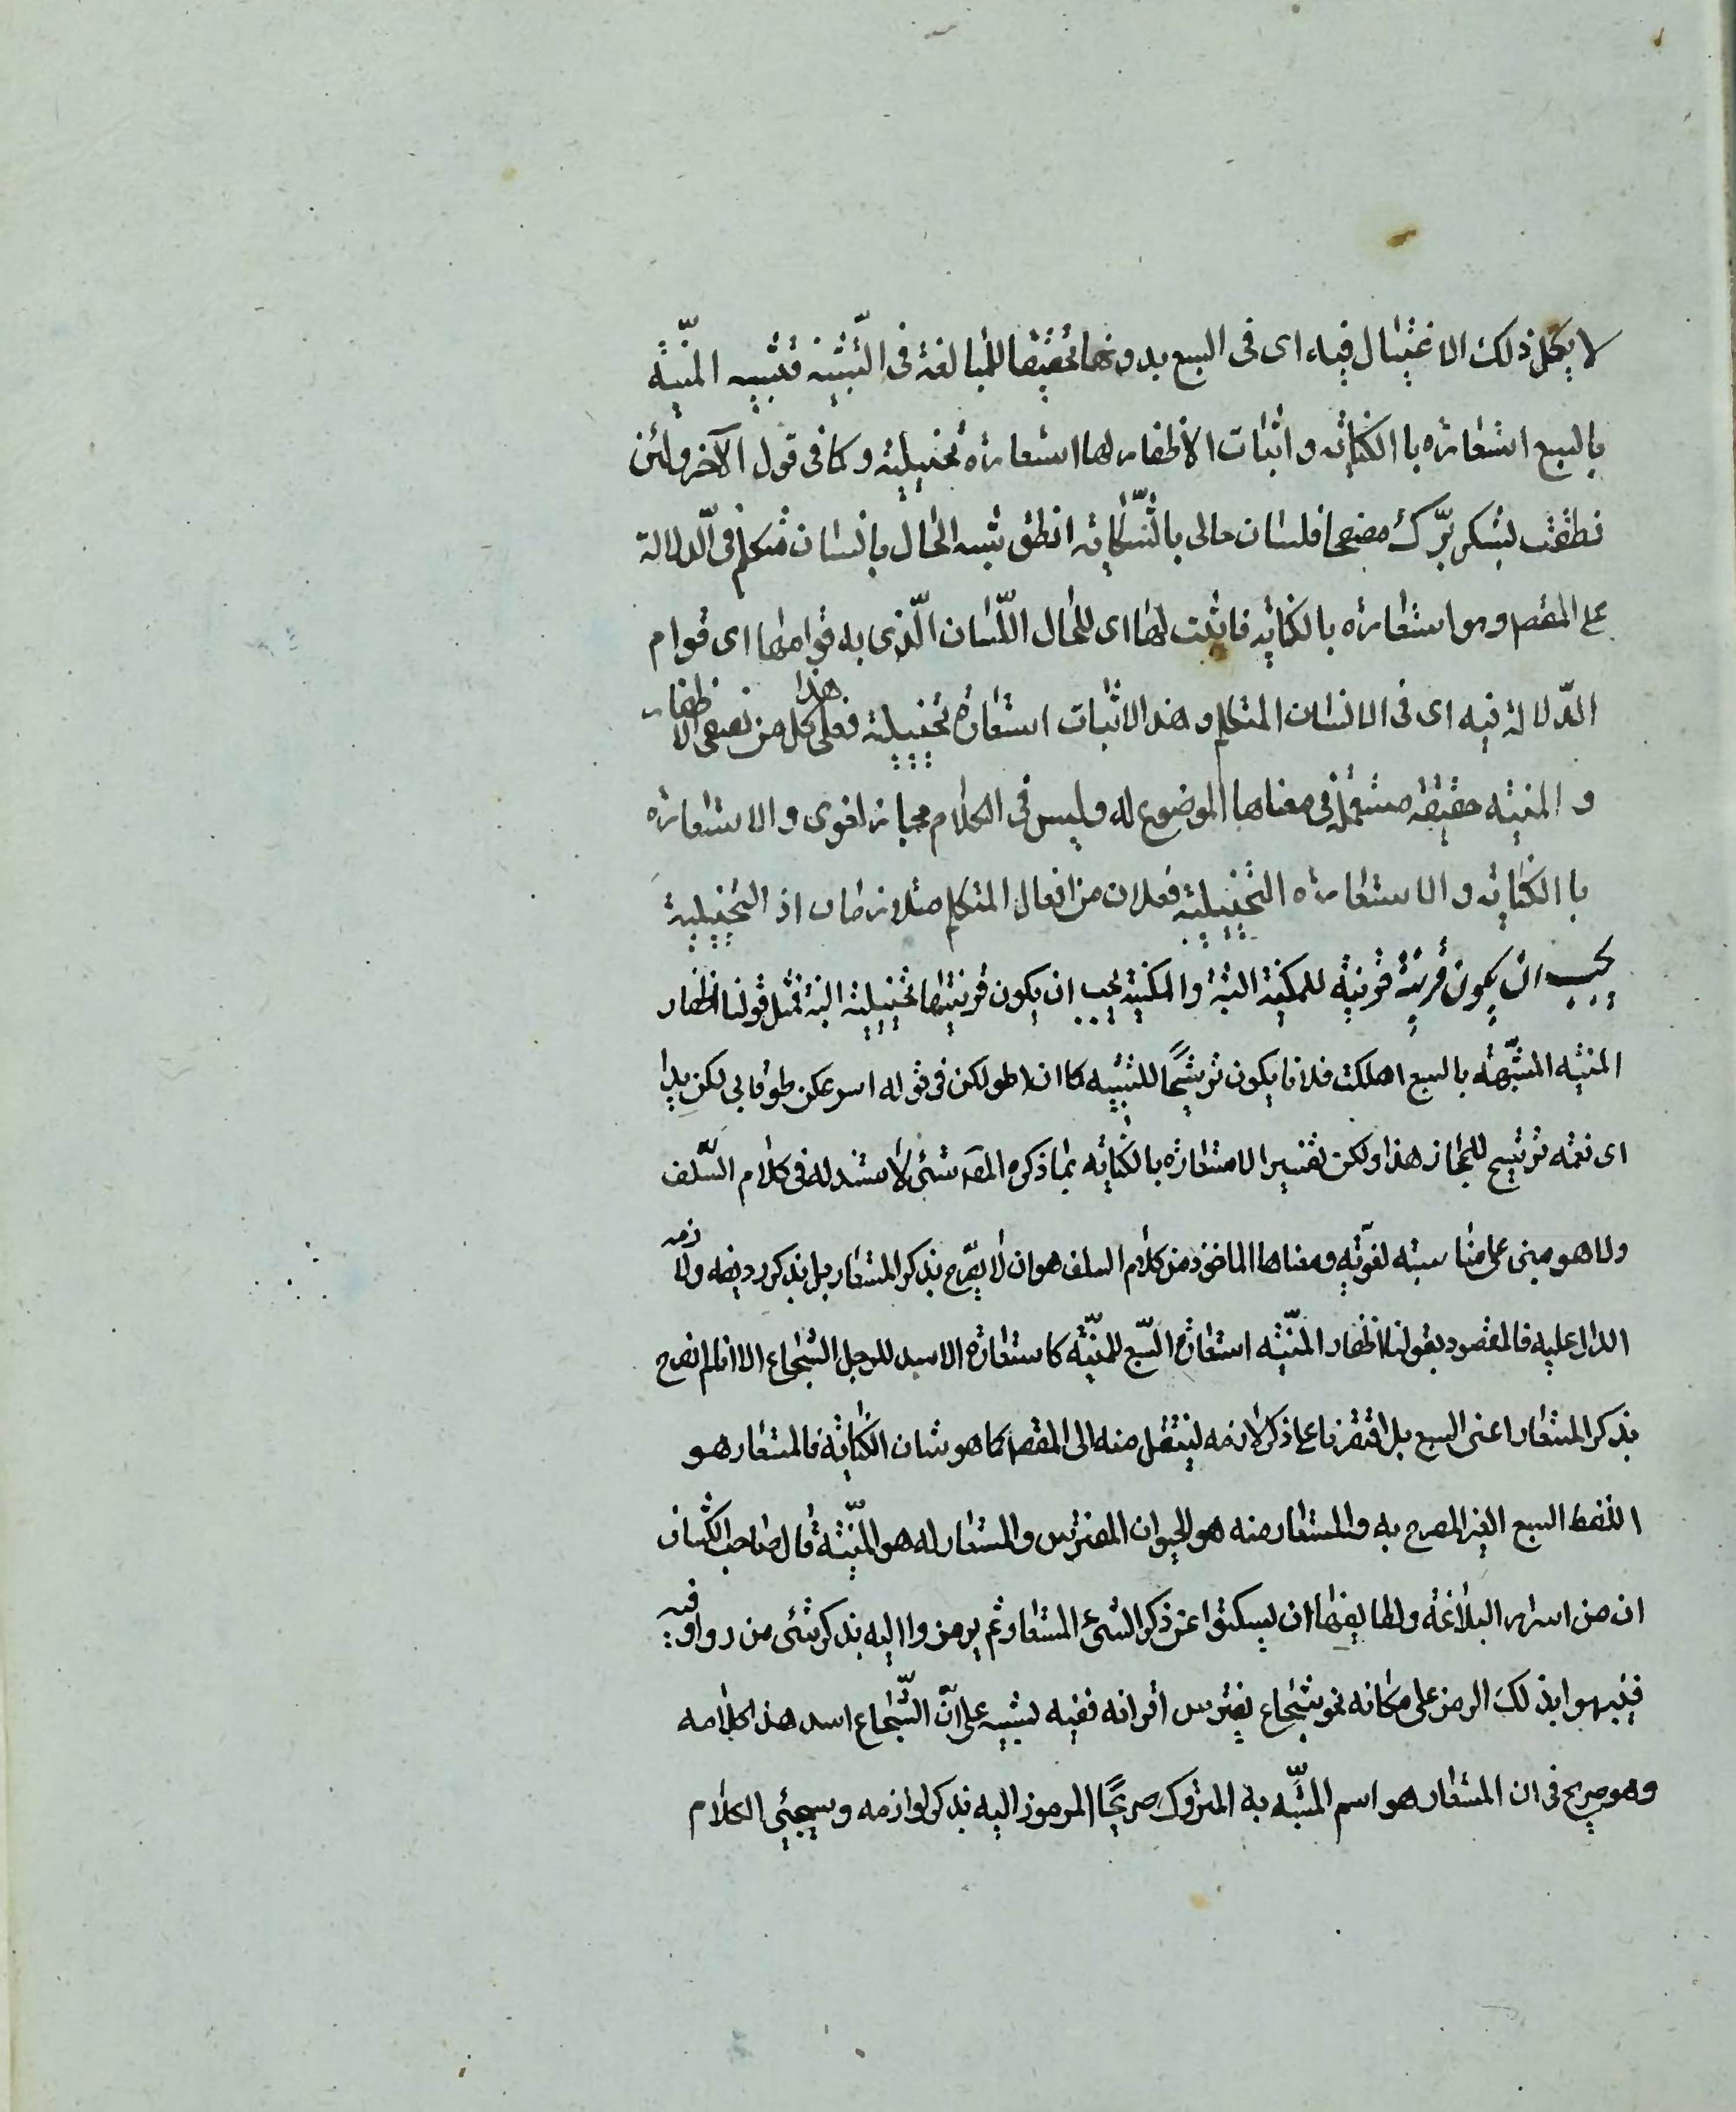 لا يكمل ذلك الاغتيال فيه اى فى السبع بدونها تحقيقا للمبالغة فى التشبيه فتشبيه المنيّة
بالسبع استعاره باالكنايه و اثبات الاظفار لها استعاره تخييلية و كما فى قول الآخر ولئن
نطقت بشكر برّك مفصحا فلسان حالى بالشّكايه انطق شبه الحال بانسان متكلم فى الّدلالة
على المقصم وهو استعاره بالكنايه فاثبت لها اى للحال اللّسان الّذى به قوامها اى قوام
الدّلالة فيه اى فى الانسان المتكلم و هذا الاثبات استعارة تخييلية فعلى هذا كل من لفظى الاظفار
و المنيّه حقيقه مستعملة فى معناها الموضوع له وليس فى الكلام مجاز لغوى و الاستعاره
باالكنايه و الاستعاره التخييلية فعلان من افعال المتكلم متلازمان اذ التخييلية
يجب ان يكون قرينة للمكنية البتة والمكنية يجب ان يكون قرينتها تخييلية البتة فمثل قولنا اظفار
المنيّه المشبّهة بالسبع اهلكت فلانا يكون ترشيحًا للتشبيه كما ان اطولكن فى قوله اسرعكن لحوقا بى اطولكن يدا
اى نعمه ترشيح للمجاز هذا ولكن تفسير الاستعاره بالكنايه بما ذكره المص شئى لا مستند له فى كلام السّلف
ولا هو مبنى على مناسبته لغويّه ومعناها الماخوذ من كلام السلف هو ان لا يصّرح بذكر المستعار بل بذكر رديفه ولازمه
الدال عليه فالمقصود بقولنا اظفار المنيّه استعارة السّبع للمنيّه كاستعارة الاسد للرجل الشجاع الا انا لم نصرح
بذكر المستعار اعنى السبع بل اقتصرنا على ذكر لازمه لينتقل منه الى المقصم كما هو شان الكنايه فالمستعار هو
اللفظ السبع الغير المصرح به والمستعار منه هو الحيوان المفترس والمستعار له هو المنيّة قال صاحب الكشاف
ان من اسرار البلاغه ولطايفها ان يسكتوا عن ذكر الشئ المستعار ثم يرمزوا اليه بذكر شئى من روادفه
فينبهوا بذلك الرمز على مكانه نحو شجاع يفترس اقرانه ففيه تشبيه على انّ الشّجاع اسد هذا كلامه
وهو صريح فى ان المستعار هو اسم المشبّه به المتروك صريحًا المرموز اليه بذكر لوازمه و سيجئى الكلام